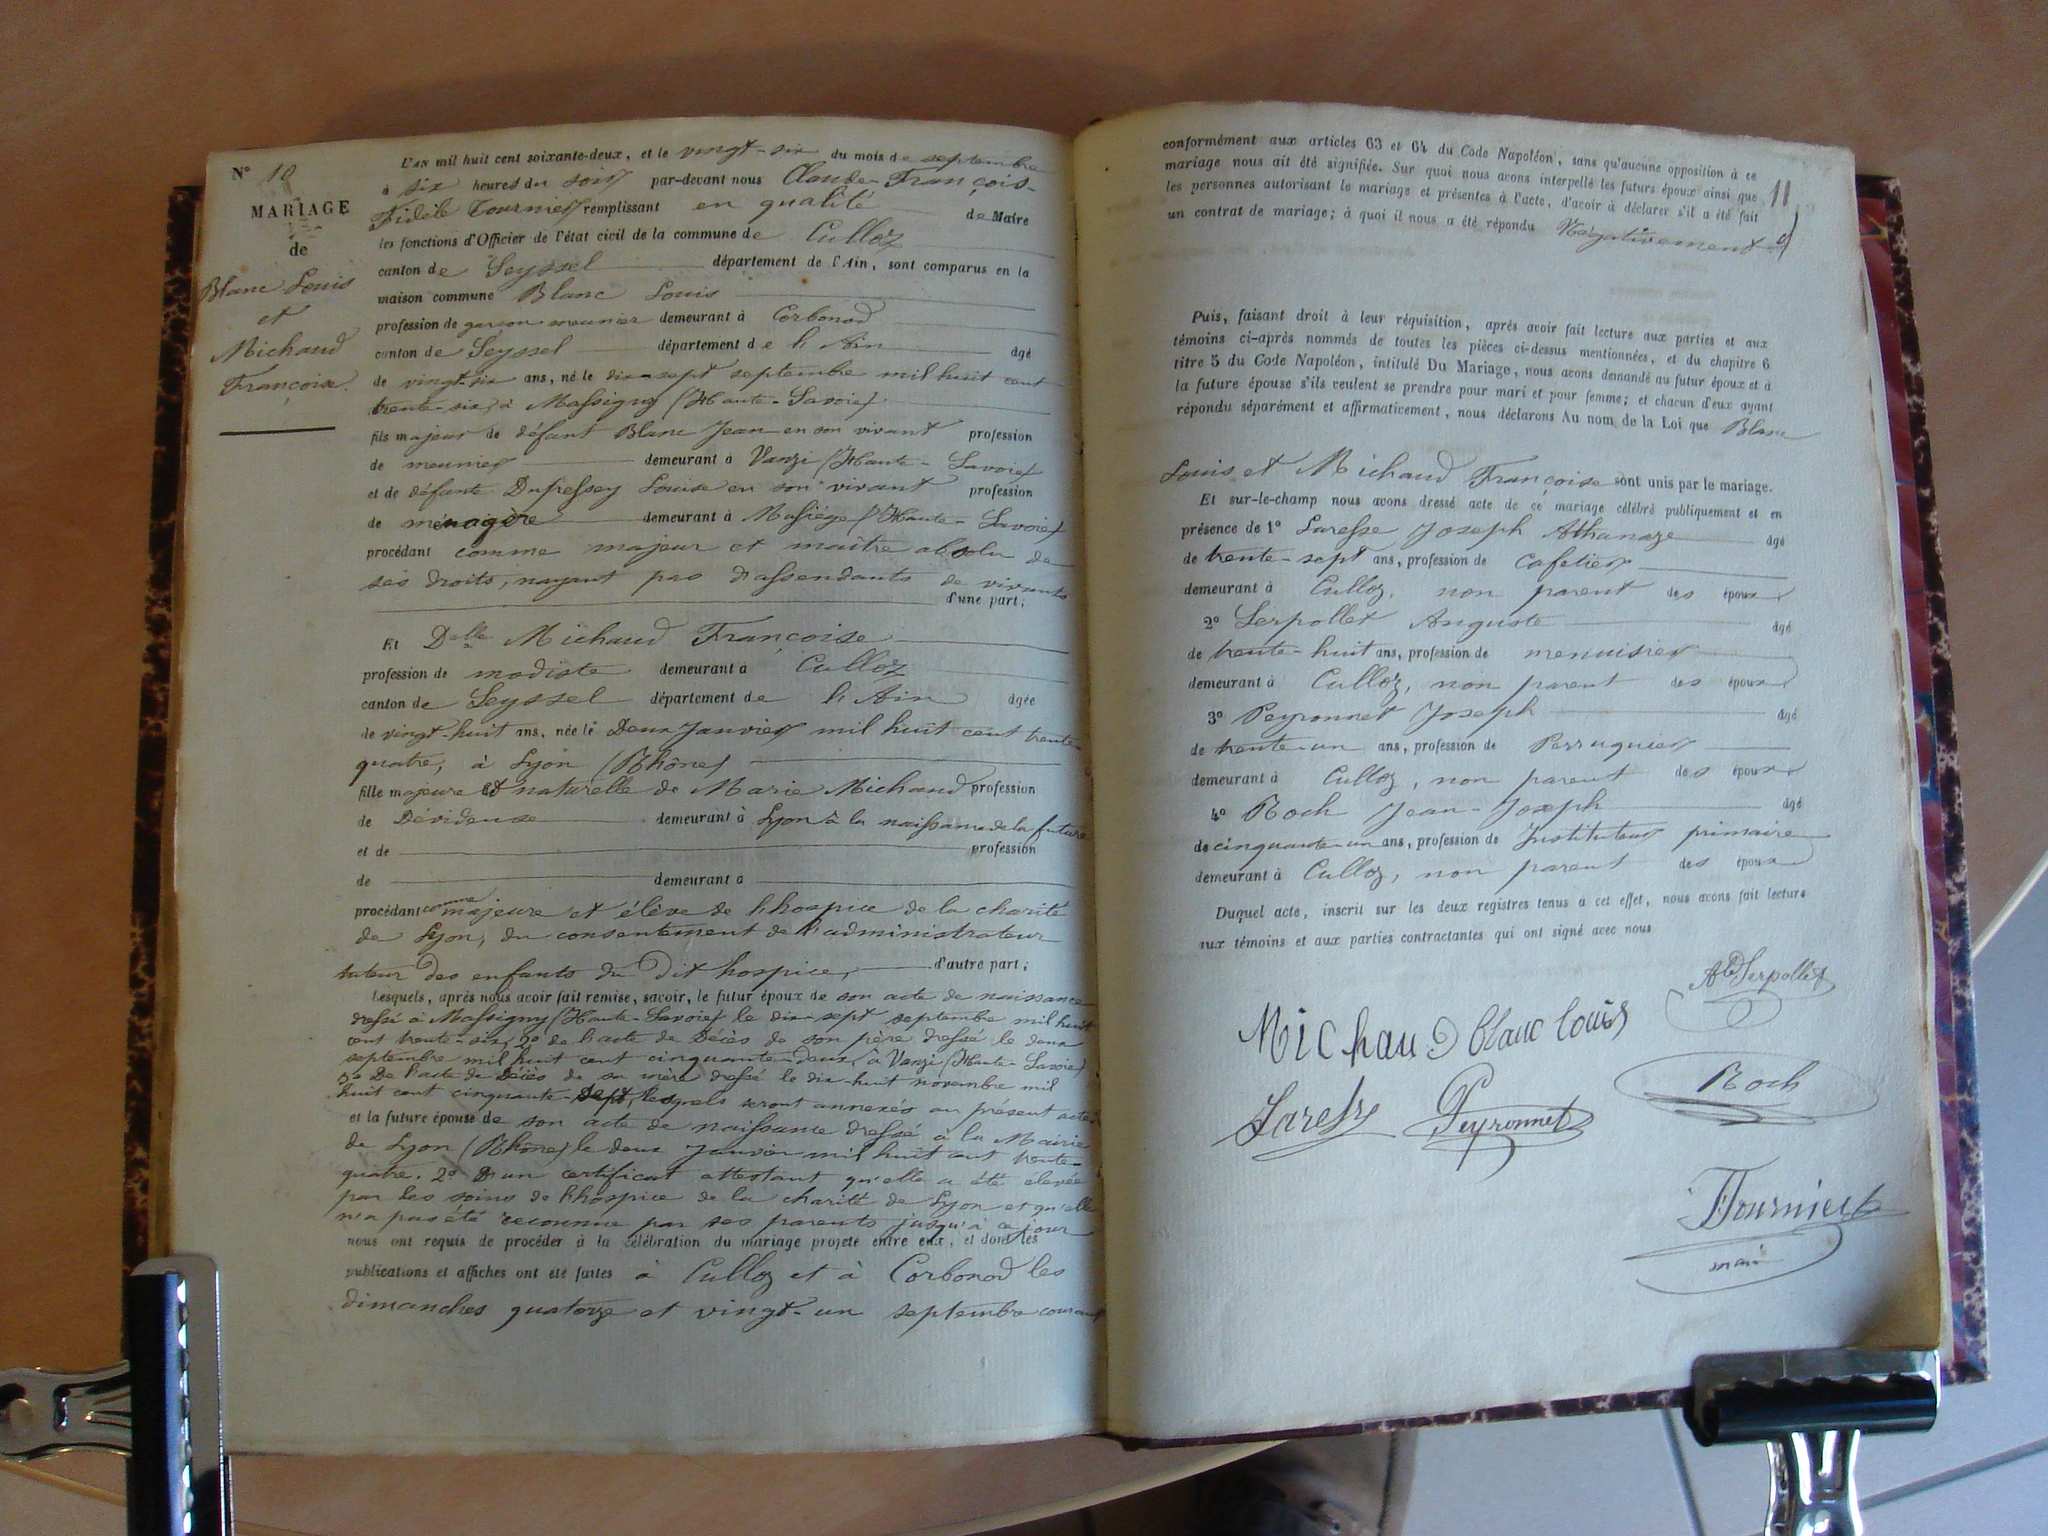 N° 10
MARIAGE
de
Blanc Louis
et
Michaud
Françoise.
L'AN mil huit cent soixante-deux, et le vingt-six du mois de septembre
à six heures du soir par-devant nous Claude-François-
Fidèle Tournier remplissant en qualité de Maire
les fonctions d'Officier de l'état civil de la commune de Culloz
canton de Seyssel département de l'Ain, sont comparus en la
maison commune Blanc Louis
profession de garçon meunier demeurant à Corbonod
canton de Seyssel département de l'Ain âgé
de vingt-six ans, né le dix-sept septembre mil huit cent
trente-six, à Massigny (Haute-Savoie)
fils majeur de défunt Blanc Jean en son vivant profession
de meunier demeurant à Vanzi (Haute-Savoie)
et de défunte Dupessey Louise en son vivant profession
de ménagère demeurant à Musiège (Haute-Savoie)
procédant comme majeur et maître absolu de
ses droits, nayant pas d'assendants de vivants
d'une part;
Et Delle Michaud Françoise
profession de modiste demeurant à Culloz
canton de Seyssel département de l'Ain âgée
de vingt-huit ans, née le Deux Janvier mil huit cent trente-
quatre, à Lyon (Rhône)
fille majeure et naturelle de Marie Michaud profession
de Dévideuse demeurant à Lyon à la naissance de la future
et de profession
de demeurant à
procédant comme majeure et élève de l'hospice de la charité
de Lyon, du consentement de l'administrateur
tuteur des enfants du dit hospice, d'autre part;
Lesquels, après nous avoir fait remise, savoir, le futur époux de son acte de naissance
dressé à Massigny (Haute-Savoie) le dix-sept septembre mil huit
cent trente-six, 2° de l'acte de Décès de son père dressé le deux
septembre mil huit cent cinquante-deux, à Vanzi (Haute-Savoie)
3° De l'acte de Décès de sa mère dressé le dix-huit novembre mil
huit cent cinquante-sept, lesquels seront annexés au présent acte,
et la future épouse de son acte de naissance dressé à la Mairie
de Lyon (Rhône) le deux Janvier mil huit cent trente-
quatre. 2° D'un certificat attestant qu'elle a été elevée
par les soins de l'hospice de la charité de Lyon et qu'elle
n'a pas été reconnue par ses parents jusqu'à ce jour
nous ont requis de procéder à la célébration du mariage projeté entre eux, et dont les
publications et affiches ont été faites à Culloz et à Corbonod les
dimanches quatorze et vingt-un septembre courant
11
conformément aux articles 63 et 64 du Code Napoléon, sans qu'aucune opposition à ce
mariage nous ait été signifiée. Sur quoi nous avons interpellé les futurs époux ainsi que
les personnes autorisant le mariage et présentes à l'acte, d'avoir à déclarer s'il a été fait
un contrat de mariage; à quoi il nous a été répondu Négativement
Puis, faisant droit à leur réquisition, après avoir fait lecture aux parties et aux
témoins ci-après nommés de toutes les pièces ci-dessus mentionnées, et du chapitre 6
titre 5 du Code Napoléon, intitulé Du Mariage, nous avons demandé au futur époux et à
la future épouse s'ils veulent se prendre pour mari et pour femme; et chacun d'eux ayant
répondu séparément et affirmativement, nous déclarons Au nom de la Loi que Blanc
Louis et Michaud Françoise sont unis par le mariage.
Et sur-le-champ nous avons dressé acte de ce mariage célébré publiquement et en
présence de 1° Laresse Joseph Athanaze âgé
de trente-sept ans, profession de cafetier
demeurant à Culloz, non parent des époux
2° Serpollet Auguste âgé
de trente-huit ans, profession de menuisier
demeurant à Culloz, non parent des époux
3° Peyronnet Joseph âgé
de trente-un ans, profession de Perruquier
demeurant à Culloz, non parent des époux
4° Roch Jean-Joseph âgé
de cinquante-un ans, profession de Instituteur primaire
demeurant à Culloz, non parent des époux
Duquel acte, inscrit sur les deux registres tenus à cet effet, nous avons fait lecture
aux témoins et aux parties contractantes qui ont signé avec nous
Serpollet
Michaud blanc louis
Roch
Laresse Peyronnet
Tournier
maire